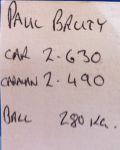 PAUL BAUTY
CAR 2.630
CARAVAN 2.490
BALL 280 KG.